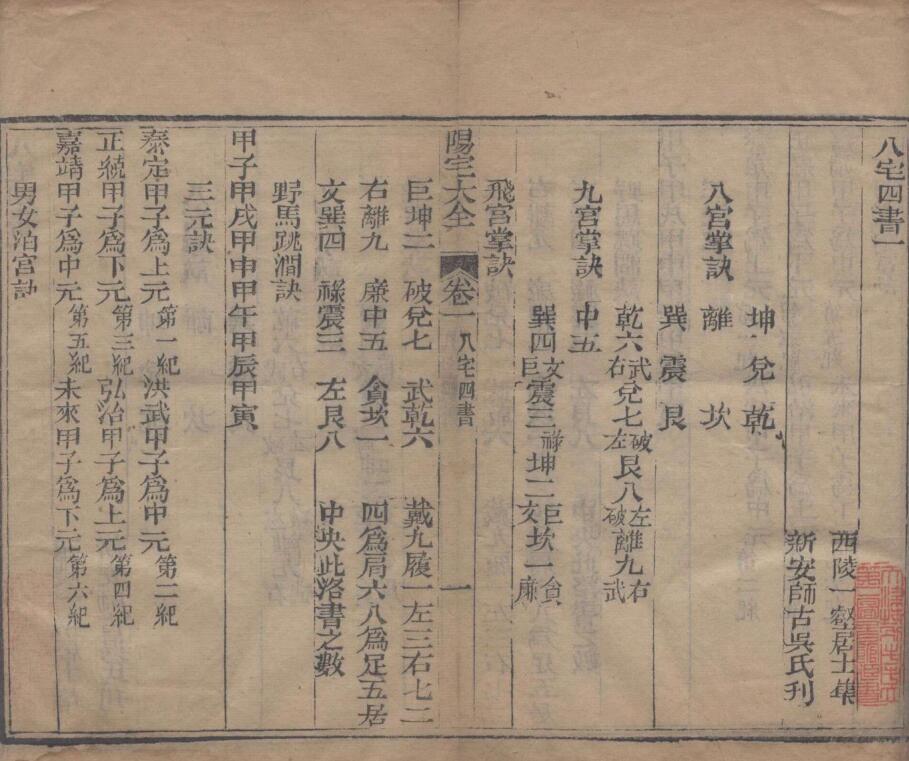 八宅四書一
西陵一壑居士集
新安師古吳氏刋
坤兌乾
八宮掌訣 離 坎
巽震艮
乾六武右兌七破左艮八左破離九右武
九宮掌訣 中五
巽四文巨震三祿坤二巨文坎一貪廉
飛宮掌訣
陽宅大全 卷一 八宅四書 一
巨坤二 破兌七 武乾六 戴九履一左三右七二
右離九 廉中五 貪坎一 四爲肩六八爲足五居
文巽四 祿震三 左艮八 中央此洛書之數
野馬跳澗訣
甲子甲戌甲申甲午甲辰甲寅
三元訣
泰定甲子爲上元第一紀洪武甲子爲中元第二紀
正統甲子爲下元第三紀弘治甲子爲上元第四紀
嘉靖甲子爲中元第五紀未來甲子爲下元第六紀
男女泊宮訣